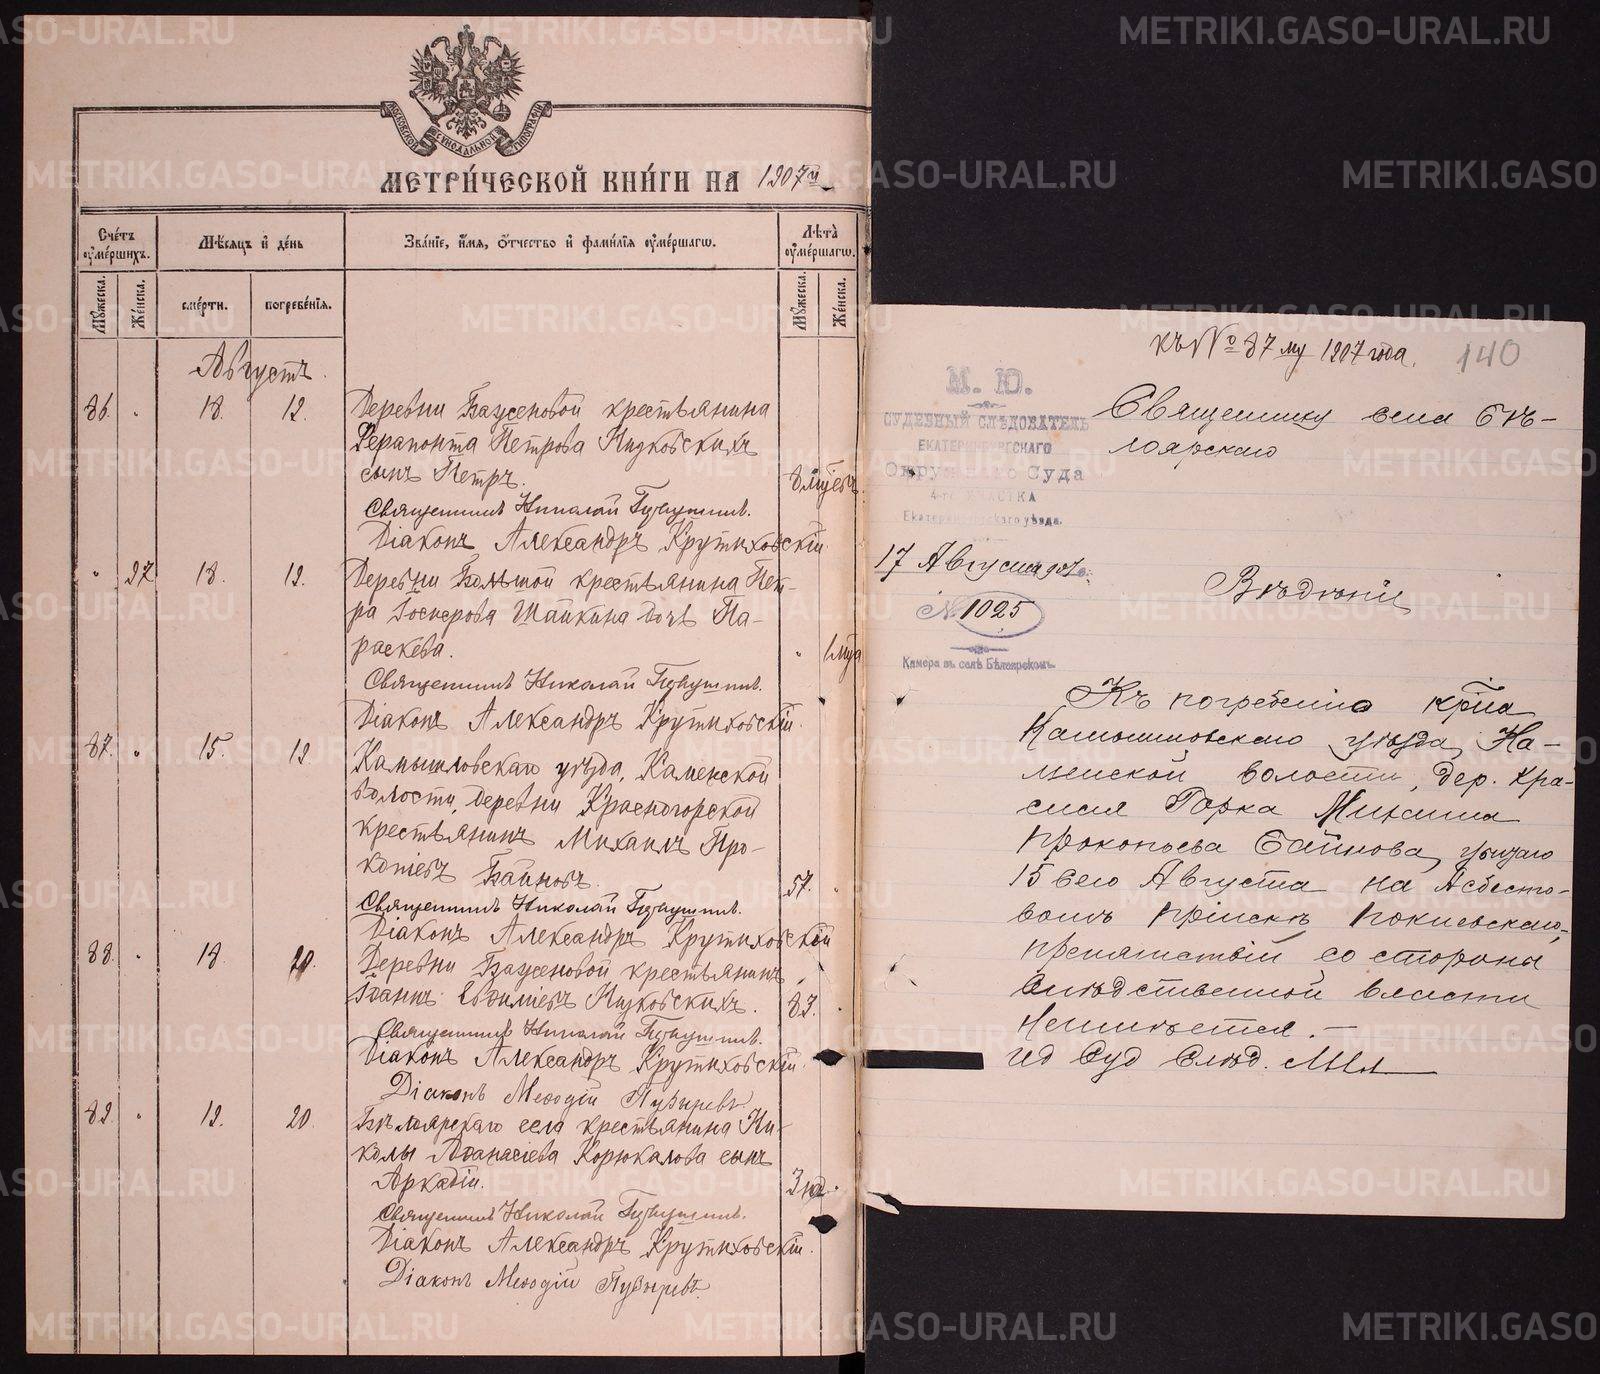 МОСКОВСКОЙ СѴНОДАЛЬНОЙ ТИПОГРАФІИ
МЕТРИ́ЧЕСКОЙ КНИ́ГИ НА 1907 й
Сче́тъ оумершихъ.
Мѣсяцъ и де́нь
Зва́ніе, и́мя, о́тчество и фами́лія оуме́ршагѡ.
Лѣта̀ оуме́ршагѡ.
Мꙋжеска.
Же́нска.
сме́рти.
погребе́нія.
Мꙋжеска.
Же́нска.
Августъ.
86. " 18. 19. Деревни Баженовой крестьянина
Ферапонта Петрова Жидковскихъ
сынъ Петръ. 8 мѣсяц.
Священникъ Николай
Діаконъ Александръ Крутиховскій.
" 97 18. 19. Деревни Большой крестьянина Пет-
ра Шайкина дочь Па-
раскева. " 1 мца
Священникъ Николай
Діаконъ Александръ Крутиховскій.
87. " 15. 19. Камышловскаго уѣзда, Каменской
волости, деревни Красногорской
крестьянинъ Михаилъ Про-
копіевъ Байновъ. 57. "
Священникъ Николай
Діаконъ Александръ Крутиховскій
88. " 18. 20. Деревни Баженовой крестьянинъ
Іоаннъ Евдиміевъ Жидковскихъ. 83. "
Священникъ Николай
Діаконъ Александръ Крутиховскій.
Діаконъ Меѳодій Пузыревъ.
89. " 19. 20. Бѣлоярскаго села крестьянина Ни-
колы Аѳанасіева Корюкалова сынъ
Аркадій. 3 "
Священникъ Николай
Діаконъ Александръ Крутиховскій.
Діаконъ Меѳодій Пузыревъ.
къ № 87 му 1907 года. 140
М. Ю.
СУДЕБНЫЙ СЛѢДОВАТЕЛЬ
ЕКАТЕРИНБУРГСКАГО
Окружнаго Суда
4-го УЧАСТКА
Екатеринбургскаго уѣзда.
17 Августа 907 г.
№ 1025
Камера въ селѣ Бѣлоярскомъ.
Священнику села Бѣ-
лоярскаго
Вѣдѣніе
Къ погребенію кр-на
Камышловскаго уѣзда, Ка-
менской волости, дер. Кра-
сная Горка Михаила
Прокопьева Байнова, убитаго
15 сего Августа на Асбесто-
вомъ пріискѣ Поклевскаго,
препятствій со стороны
слѣдственной власти
не имѣется. —
Суд. Слѣд.
METRIKI.GASO-URAL.RU